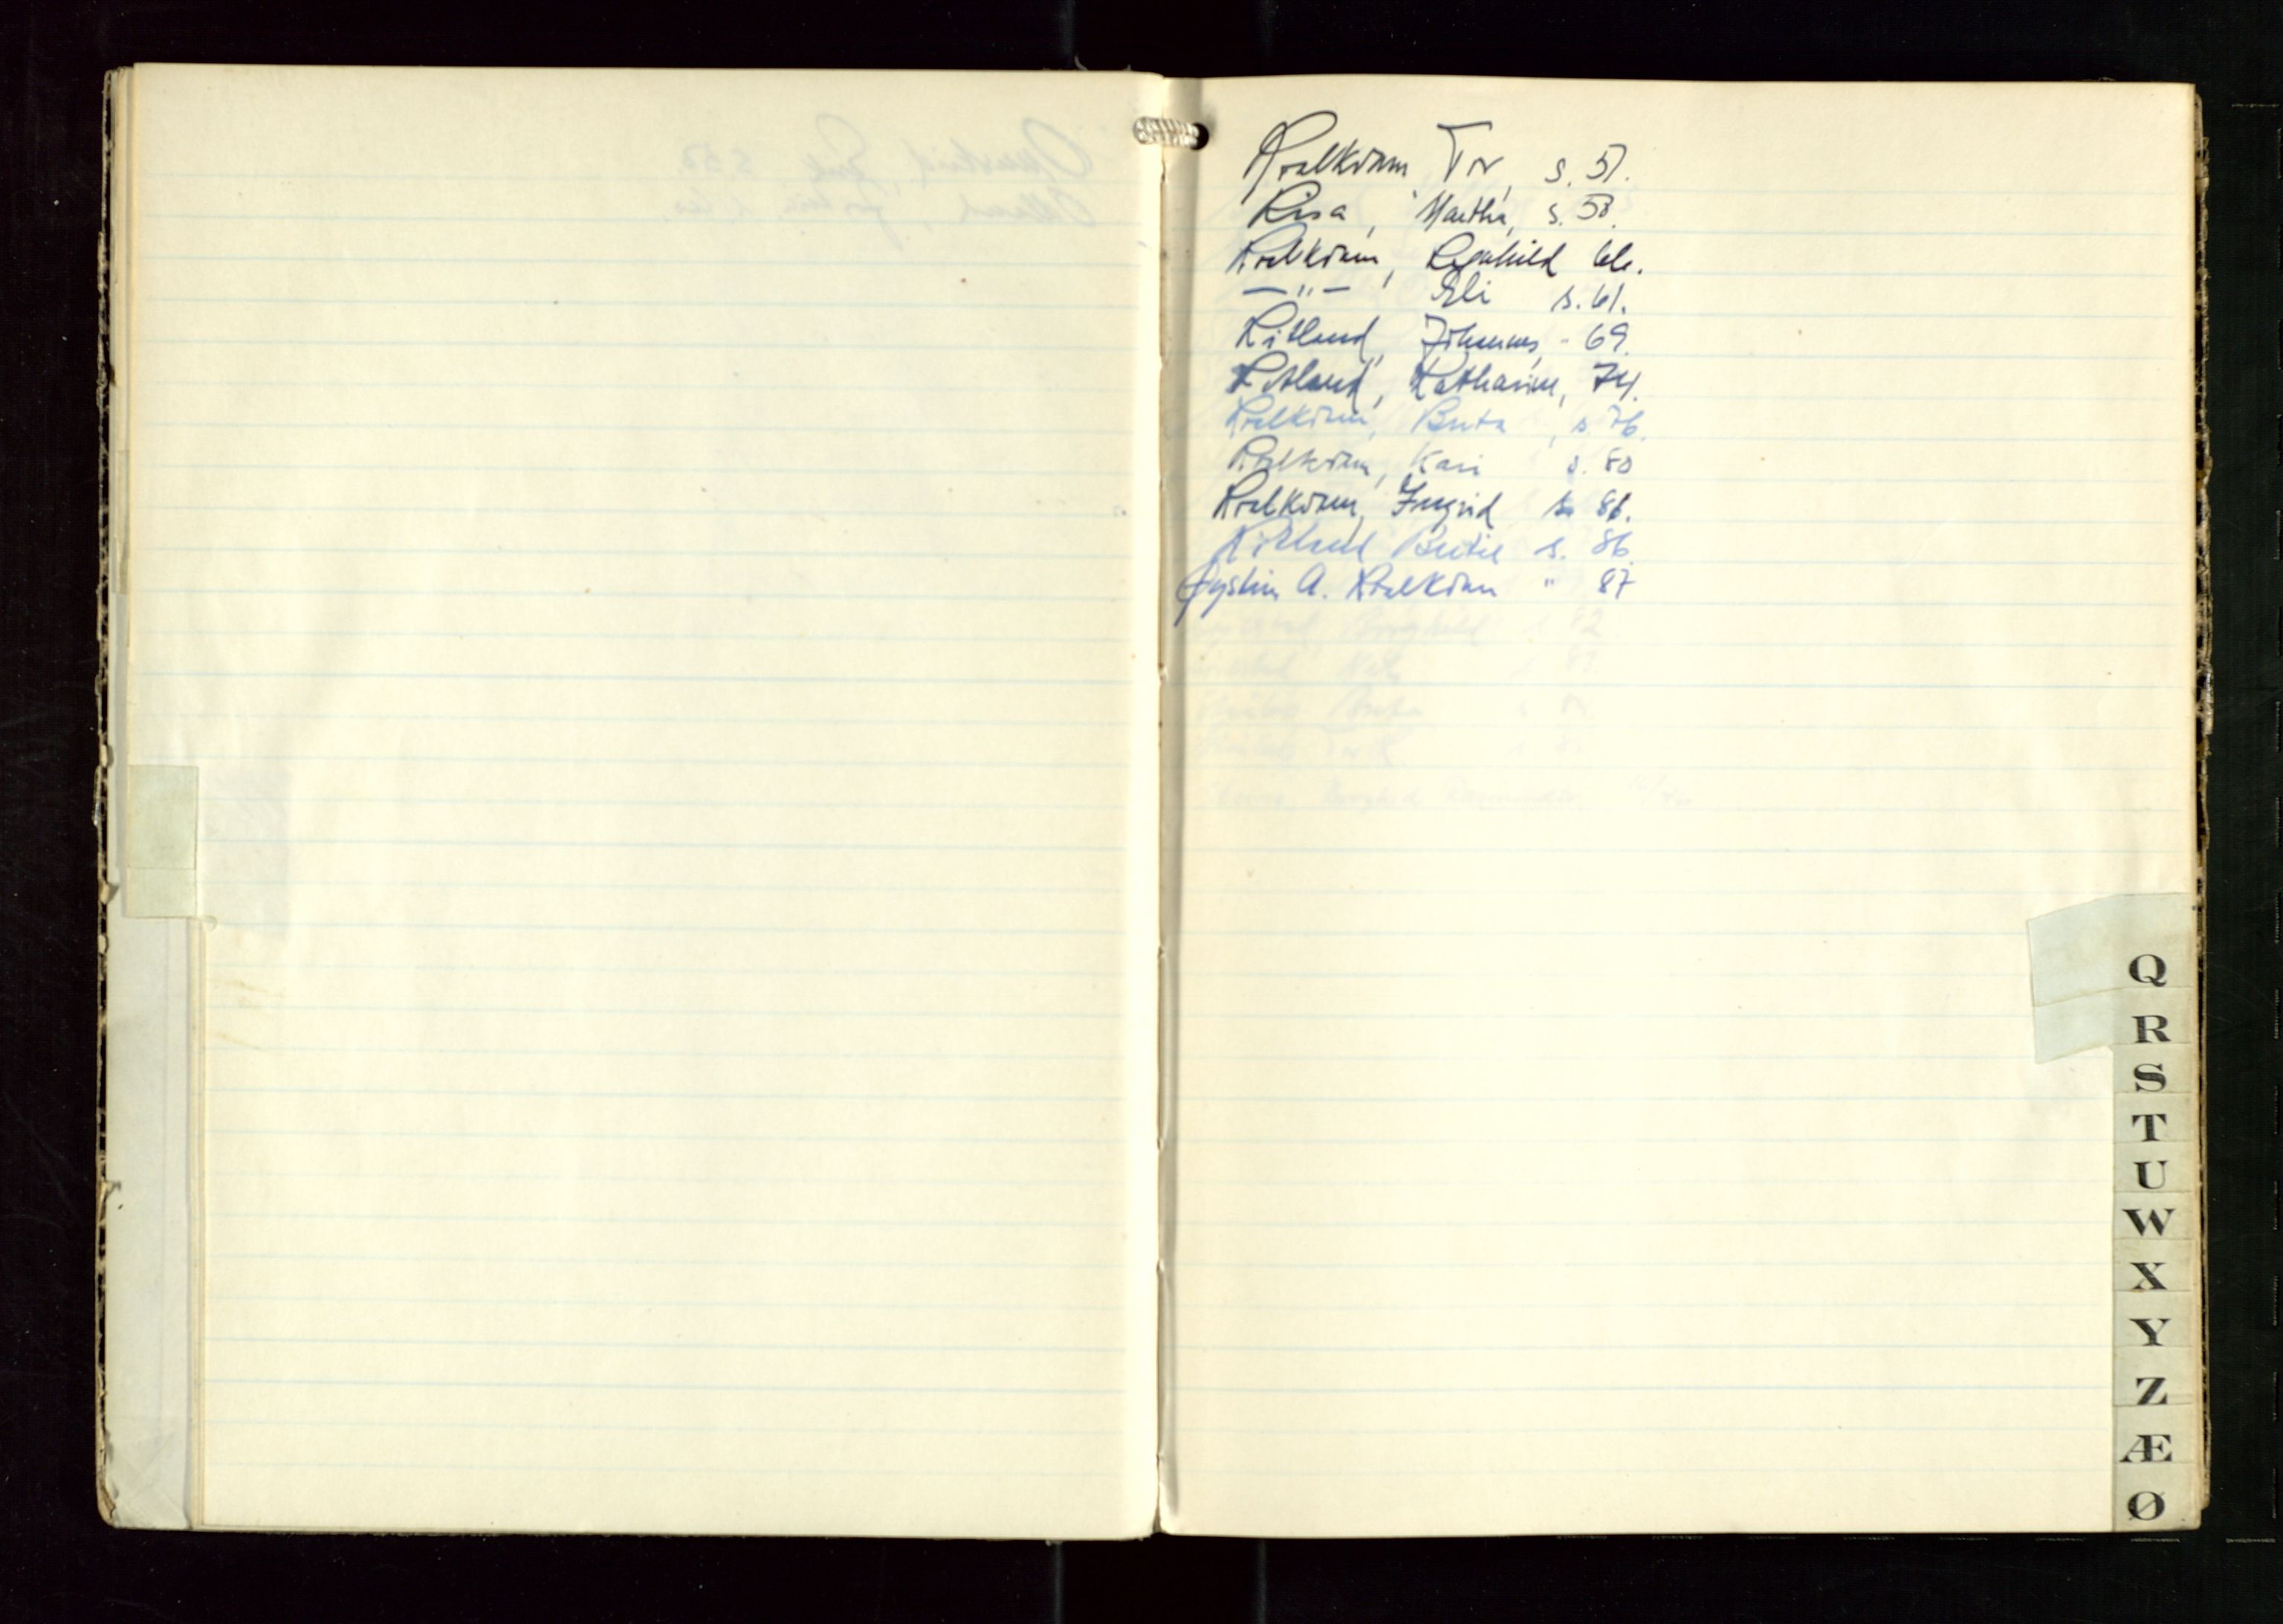 Roalkvam, Tor, s. 51.
Risa, Martha, s. 58.
Roalkvam, Ragnhild 66.
—"— , Eli s. 61.
Ritland, Johannes, " 69.
Ritland, Katharina, 74.
Roalkvam, Berta, s. 76.
Roalkvam, Kari s. 80
Roalkvam, Ingrid s. 86.
Ritland Bertie s. 86.
Øystein A. Roalkvam " 87
Q
R
S
T
U
W
X
Y
Z
Æ
Ø